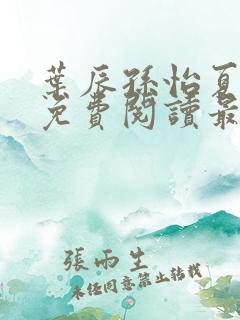 葉辰孫怡夏
免費閱讀最
張雨生
未經同意禁止轉載